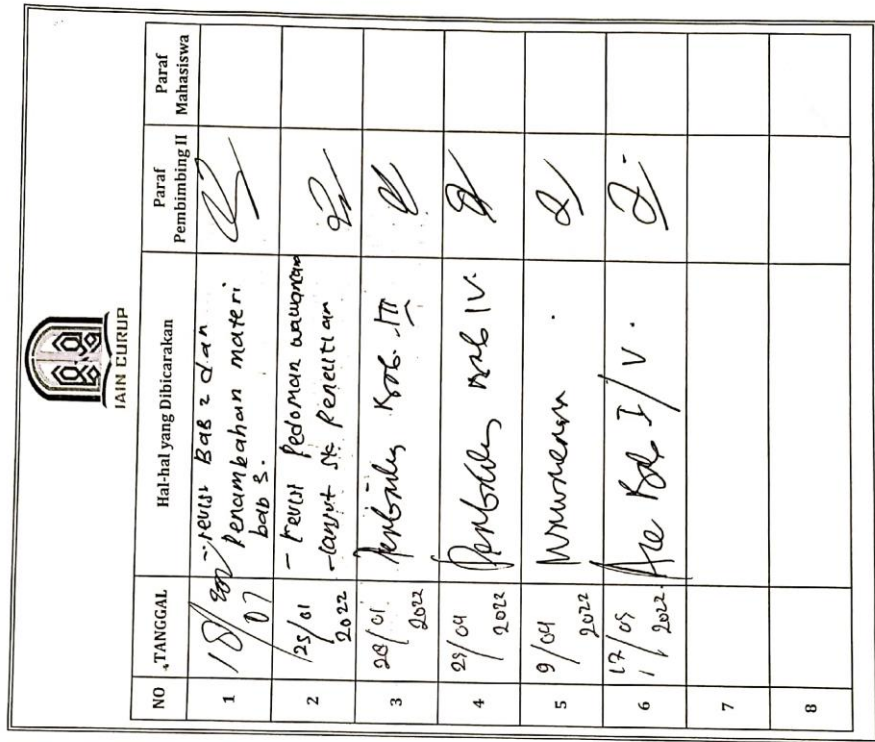 IAIN CURUP
NO TANGGAL Hal-hal yang Dibicarakan Paraf Pembimbing II Paraf Mahasiswa
1 18/07 - revisi Bab 2 dan
Penambahan materi
bab 3.
2 25/01 2022 - revisi Pedoman wawancara
- lanjut SK Penelitian
3 28/01 2022 Perbaiki Bab. III
4 25/04 2022 Perbaiki Bab IV.
5 9/04 2022
6 17/05 2022. Acc Bab I/V.
7
8